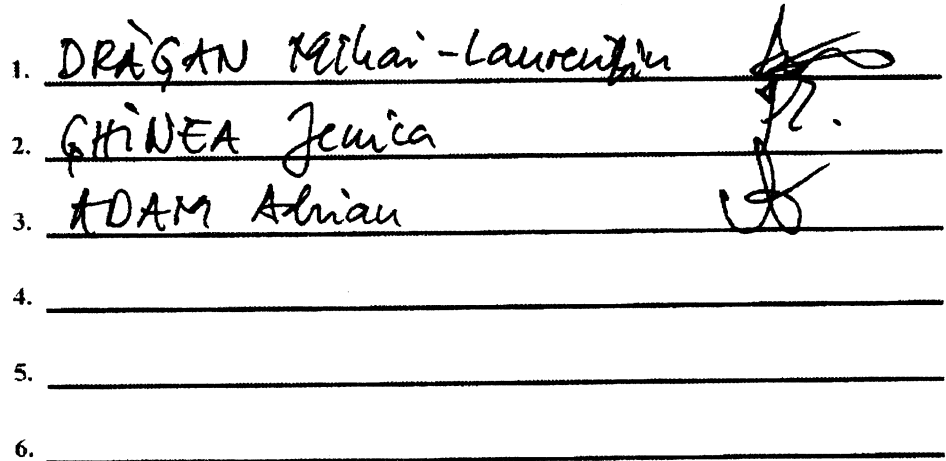 1. DRĂGAN Mihai-Laurențiu
2. GHINEA Jenica
3. ADAM Adrian
4.
5.
6.